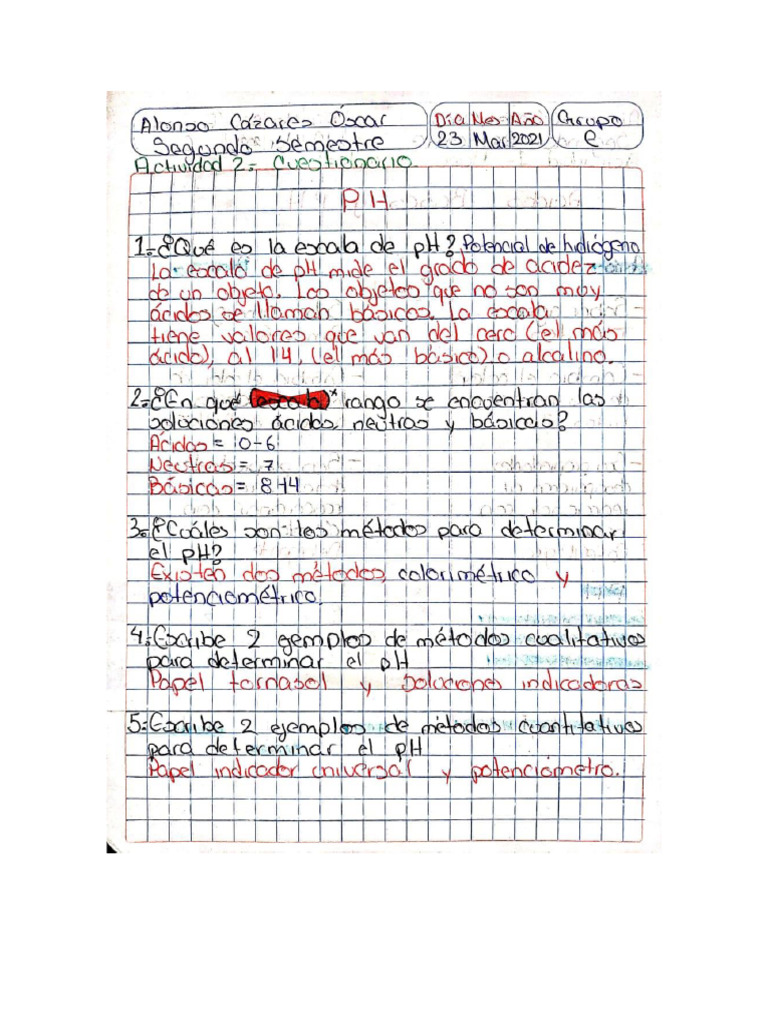 Alonso Cázares Óscar
Día Mes Año
Grupo
Segundo Semestre
23 Mar 2021
e
Actividad 2:- Cuestionario
PH
1.-¿Qué es la escala de pH? Potencial de hidrógeno
La escala de pH mide el grado de acidez
de un objeto. Los objetos que no son muy
ácidos se llaman básicos. La escala
tiene valores que van del cero (el más
ácido), al 14, (el más básico) o alcalino.
2.-¿En qué rango se encuentran las
soluciones ácidas neutras y básicas?
Ácidas = 0-6
Neutras = 7
Básicas = 8-14
3.-¿Cuáles son los métodos para determinar
el pH?
Existen dos métodos, colorimétrico y
potenciométrico.
4.-Escribe 2 ejemplos de métodos cualitativos
para determinar el pH
Papel tornasol y soluciones indicadoras
5.-Escribe 2 ejemplos de métodos cuantitativos
para determinar el pH
Papel indicador universal y potenciómetro.